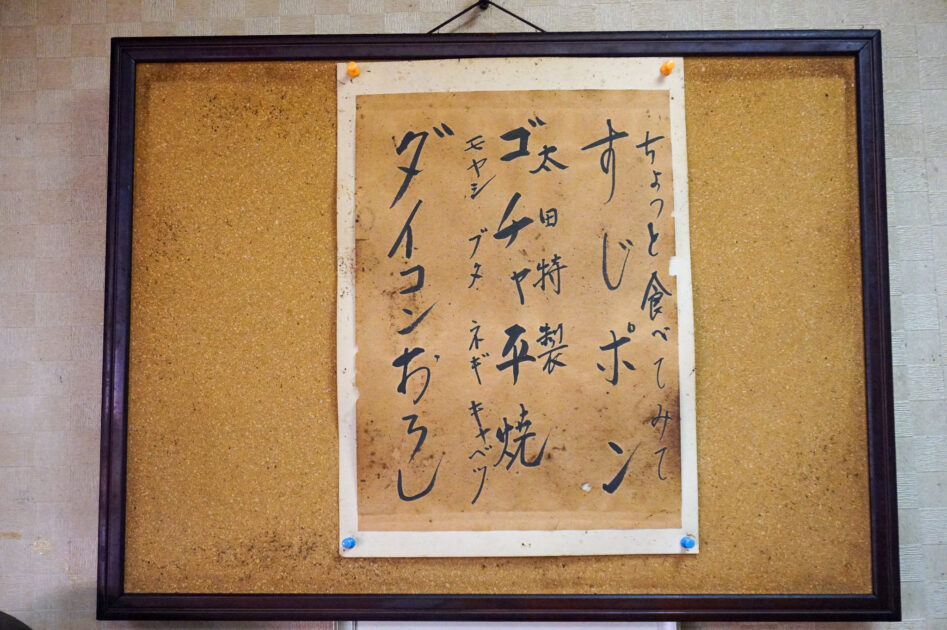 ちょっと食べてみて
すじポン
太田特製
ゴチャ平焼
モヤシ ブタ ネギ キャベツ
ダイコンおろし